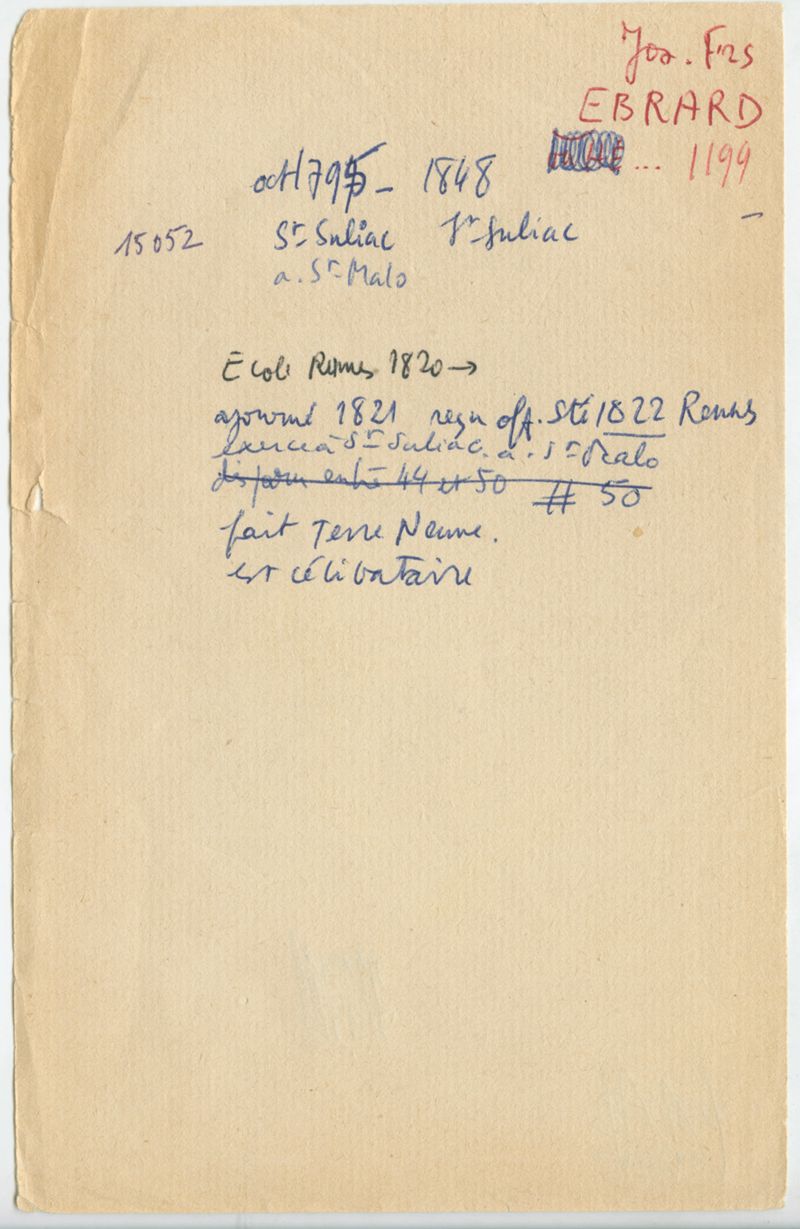 Jos. Frs
EBRARD
... 1199
oct 1795 - 1848
15052 St Suliac St Suliac -
a. St Malo
Ecole Rennes 1820 →
ajourné 1821 reçu off. Sté 1822 Rennes
exerce à St Suliac. a. St Malo
disparu entre 44 et 50 # 50
fait Terre Neuve.
est célibataire